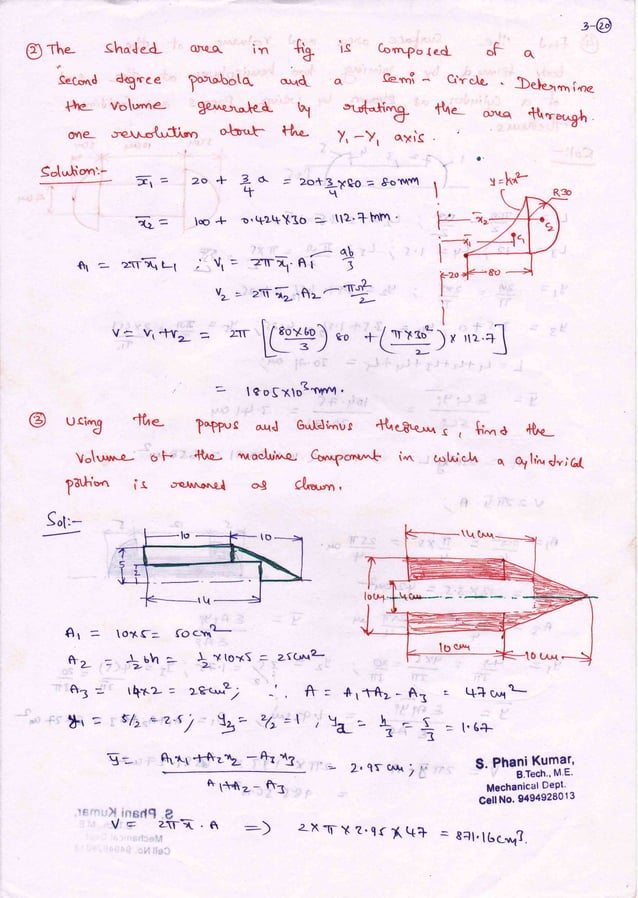 3-20
② The shaded area in fig is composed of a
second degree parabola and a semi-circle. Determine
the volume generated by rotating the area through
one revolution about the Y₁-Y₁ axis.
Solution:-
x̄₁ = 20 + 3/4 a = 20 + 3/4 × 80 = 80 mm
x̄₂ = 100 + 0.424×30 = 112.7mm.
A₁ = 2πx̄₁L₁ ; V₁ = 2πx̄₁ A₁ ab/3
V₂ = 2πx̄₂ A₂ πr²/2
y=kx²
R30
x̄₂
x̄₁
C₁
C₂
20
80
V = V₁+V₂ = 2π [(80×60/3) 80 + (π×30²/2) × 112.7]
= 1805×10³mm.
③ Using the pappus and Guldinus theorems, find the
Volume of the machine Component in which a cylindrical
portion is removed as shown.
Sol:-
10
10
5
2
14
14 cm
10cm
4cm
10 cm
10 cm
A₁ = 10×5 = 50cm²
A₂ = ½bh = ½×10×5 = 25cm²
A₃ = 14×2 = 28cm²; ∴ A = A₁+A₂-A₃ = 47cm²
y₁ = 5/2 = 2.5; y₃ = 2/2 = 1 ; y₂ = h/3 = 5/3 = 1.67
ȳ = A₁x₁+A₂x₂-A₃x₃ / A₁+A₂-A₃ = 2.95cm;
V = 2πx̄.A => 2×π×2.95×47 = 871.16cm³.
S. Phani Kumar,
B.Tech., M.E.
Mechanical Dept.
Cell No. 9494928013